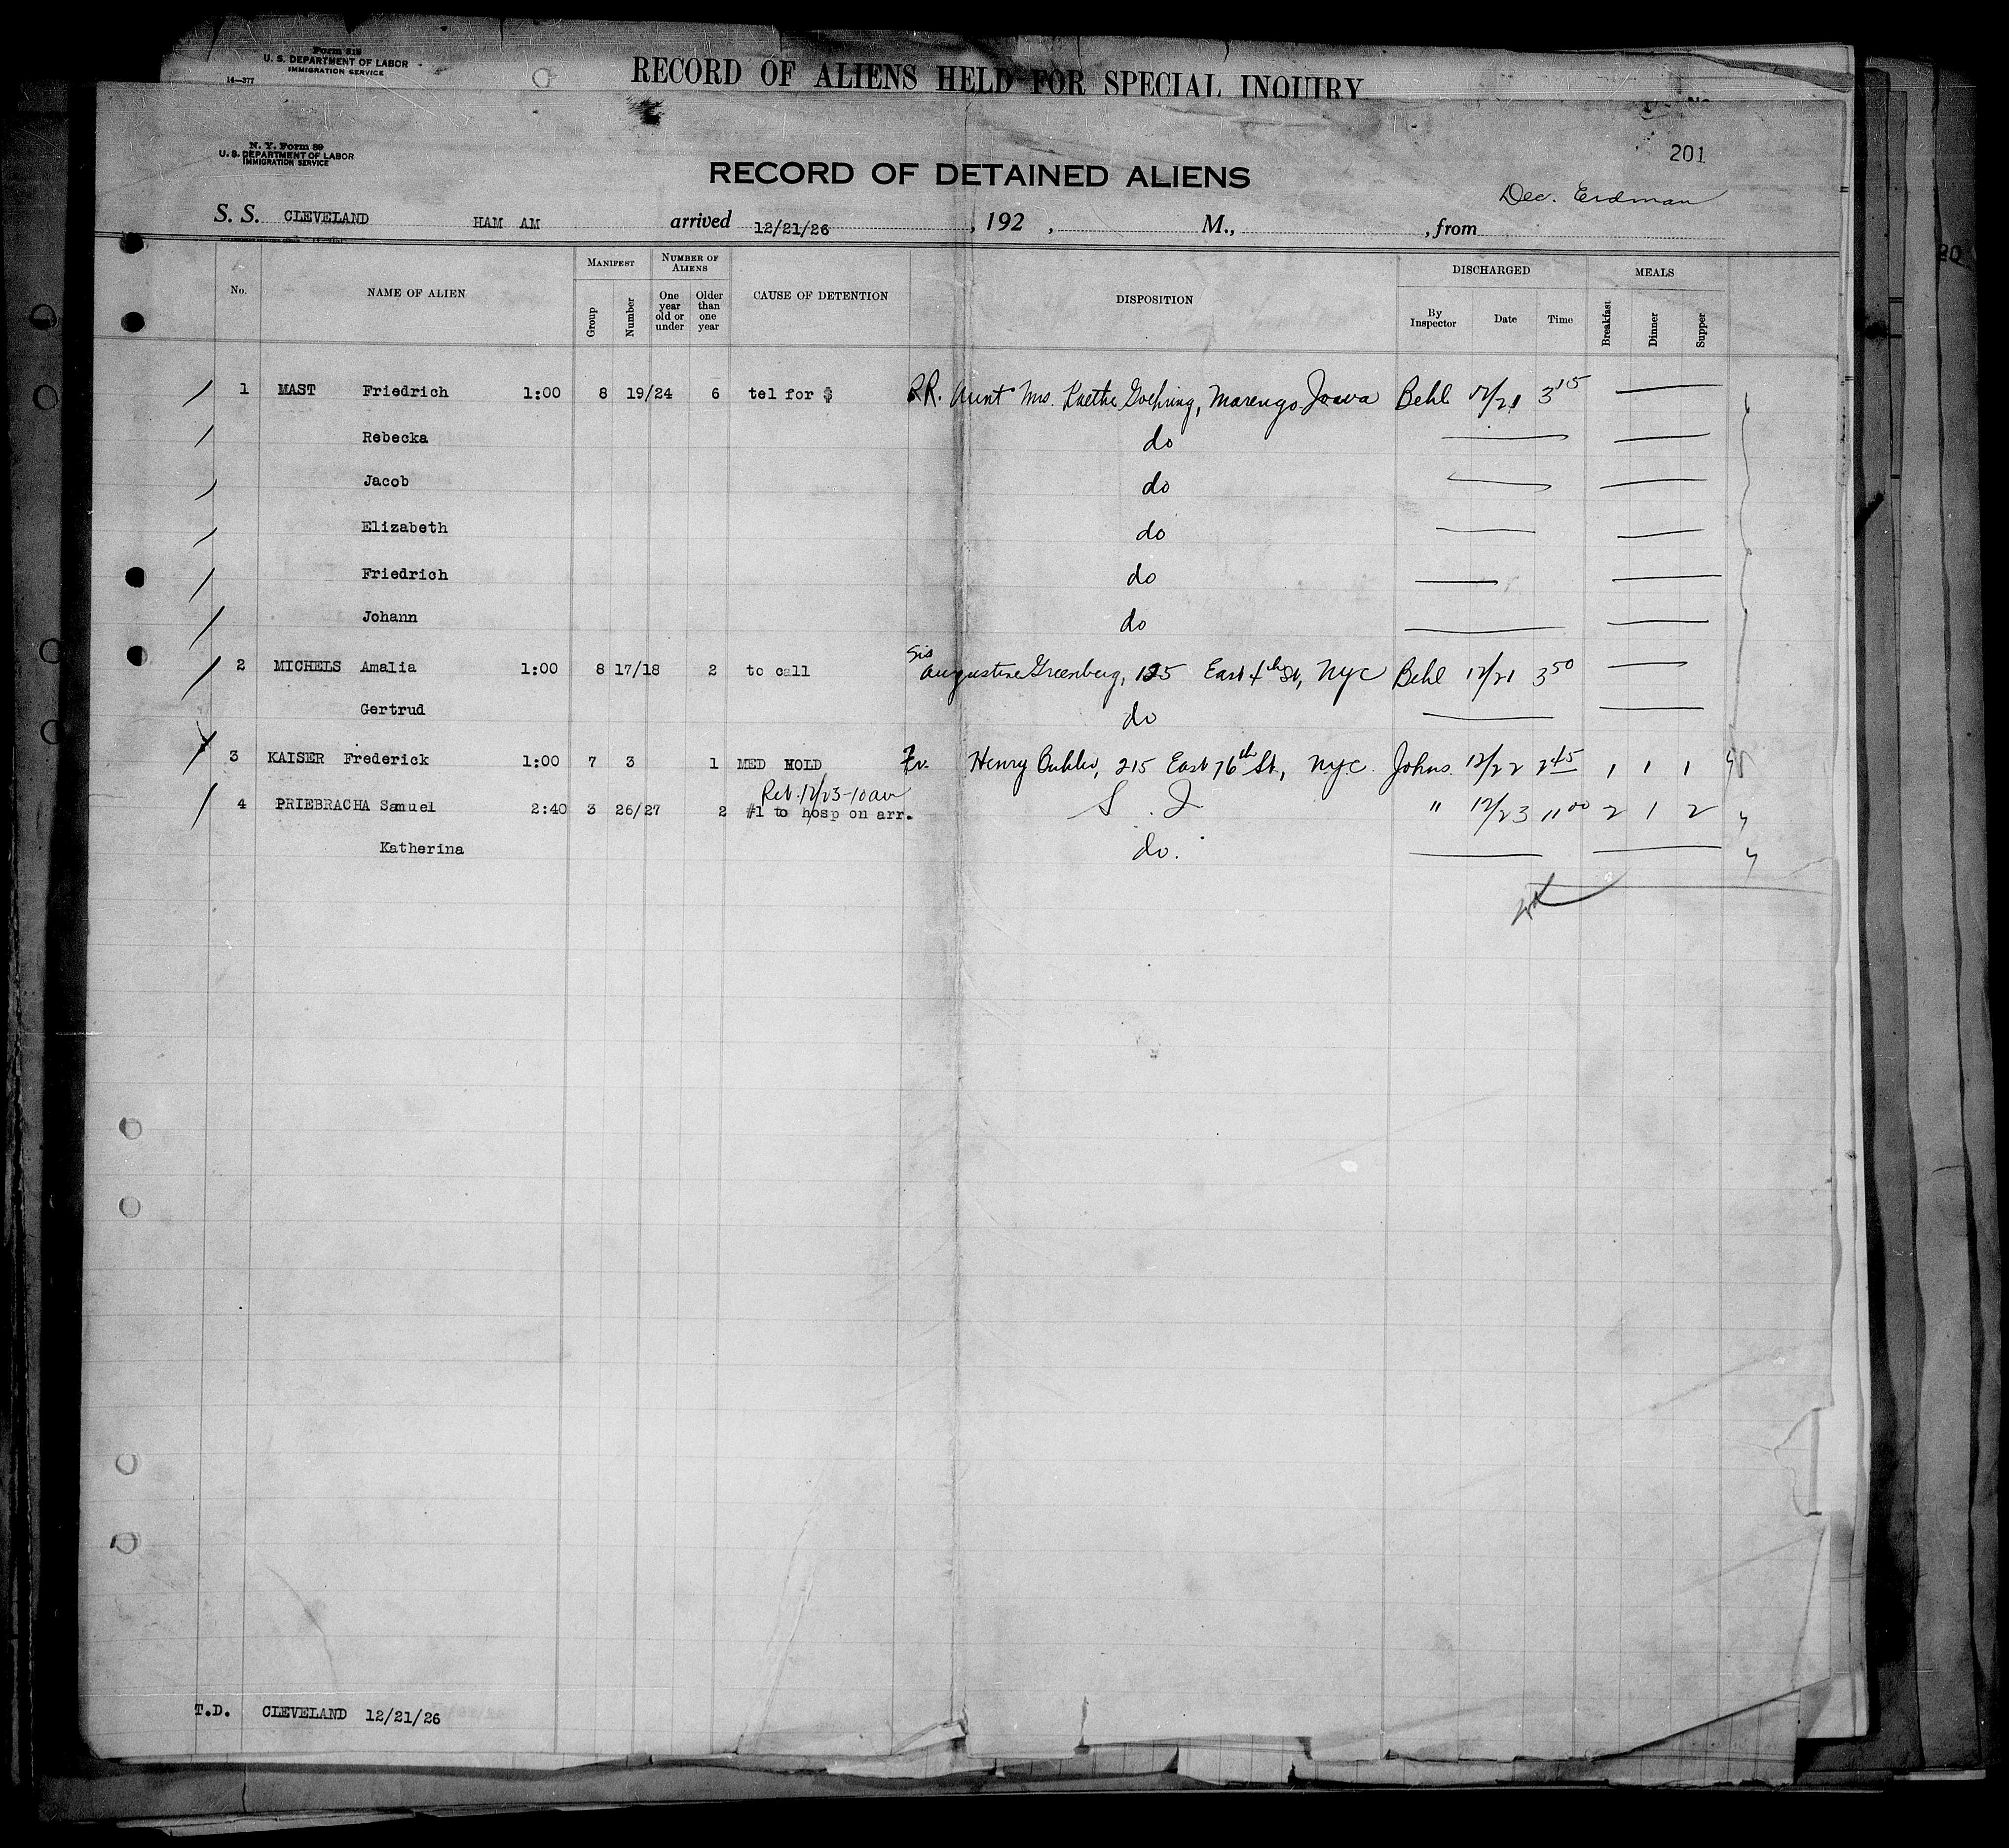 Form 518
U. S. DEPARTMENT OF LABOR
IMMIGRATION SERVICE
14—377
RECORD OF ALIENS HELD FOR SPECIAL INQUIRY
N. Y. Form 89
U. S. DEPARTMENT OF LABOR
IMMIGRATION SERVICE
201
RECORD OF DETAINED ALIENS
Dec. Erdman
S. S. CLEVELAND HAM AM arrived 12/21/26, 192 , M., , from
No. NAME OF ALIEN MANIFEST NUMBER OF ALIENS CAUSE OF DETENTION DISPOSITION DISCHARGED MEALS
Group Number One year old or under Older than one year By Inspector Date Time Breakfast Dinner Supper
1 MAST Friedrich 1:00 8 19/24 6 tel for $ RR. Aunt Mrs. Kaethe Goehring, Marengo Iowa Behl 12/21 3 15
Rebecka do
Jacob do
Elizabeth do
Friedrich do
Johann do
2 MICHELS Amalia 1:00 8 17/18 2 to call Sis Augustine Greenberg, 125 East 4th St, NYC Behl 12/21 3 50
Gertrud do
3 KAISER Frederick 1:00 7 3 1 MED HOLD Fr. Henry Buhler, 215 East 76th St., NYC. Johns. 12/22 2 45 1 1 1
Ret. 12/23-10am
4 PRIEBRACHA Samuel 2:40 3 26/27 2 #1 to hosp on arr. S. I " 12/23 11 00 2 1 2
Katherina do.
T.D. CLEVELAND 12/21/26
20